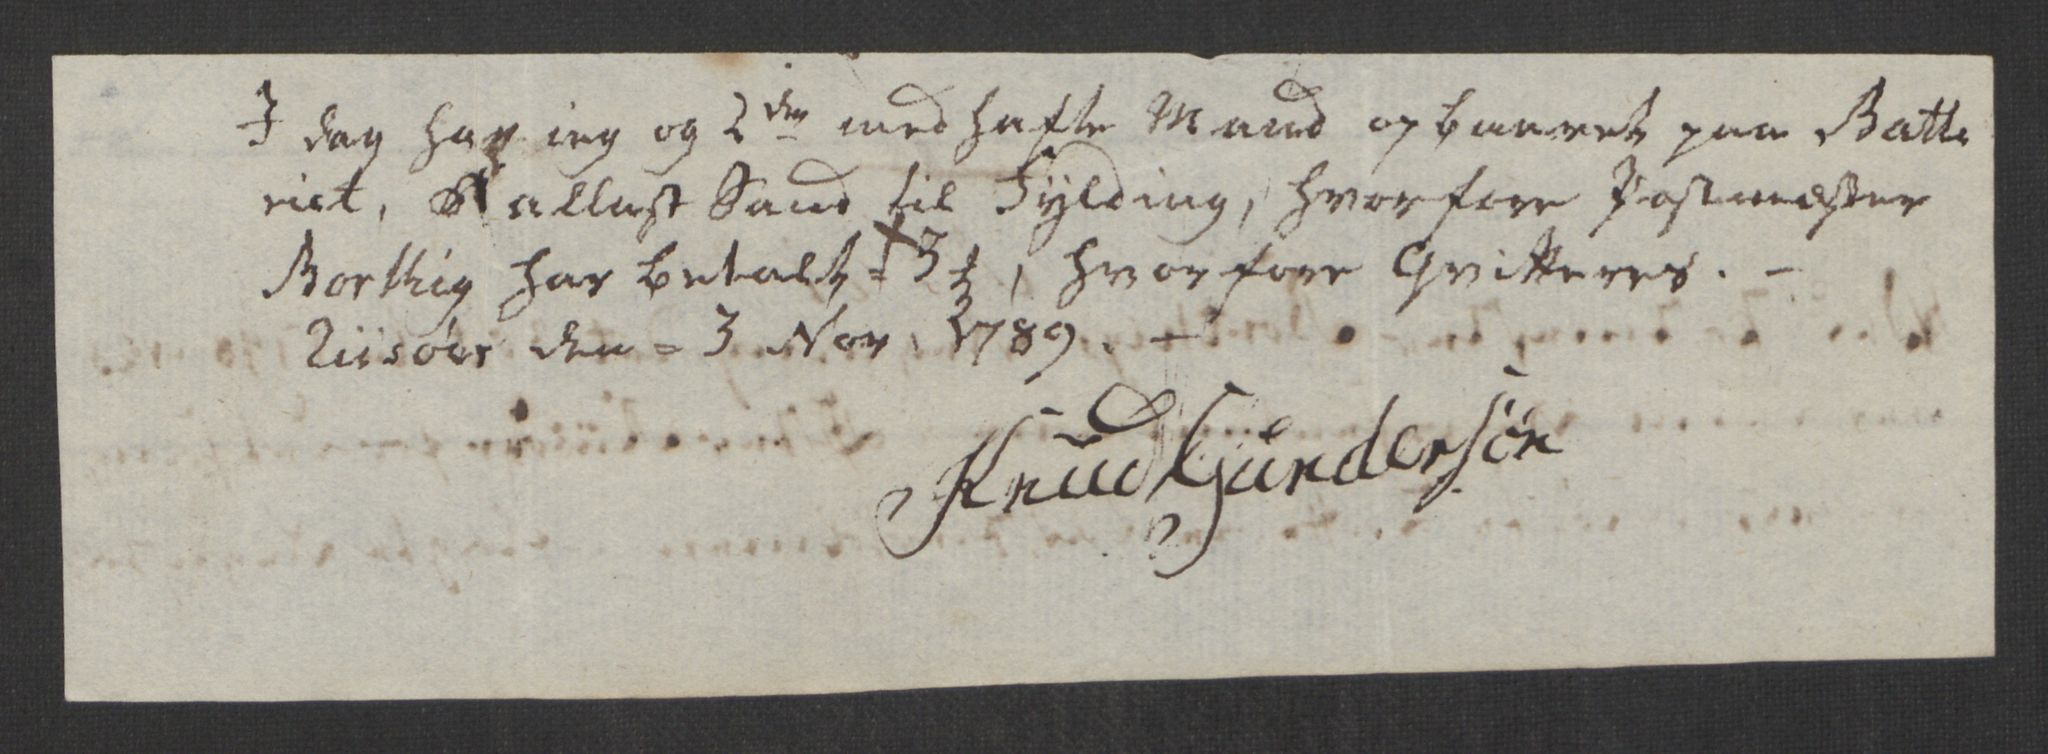 I dag har ieg og 2 den med hafte Mand opbaaret paa Batte
riet, Ballast Sand til Fylding, hvorfore Postmester
Borthig har betalt 3 ½, hvorfore Qvitteres. -
Riisöer den = 3 Nov. 1789. -
Knud Gundersön